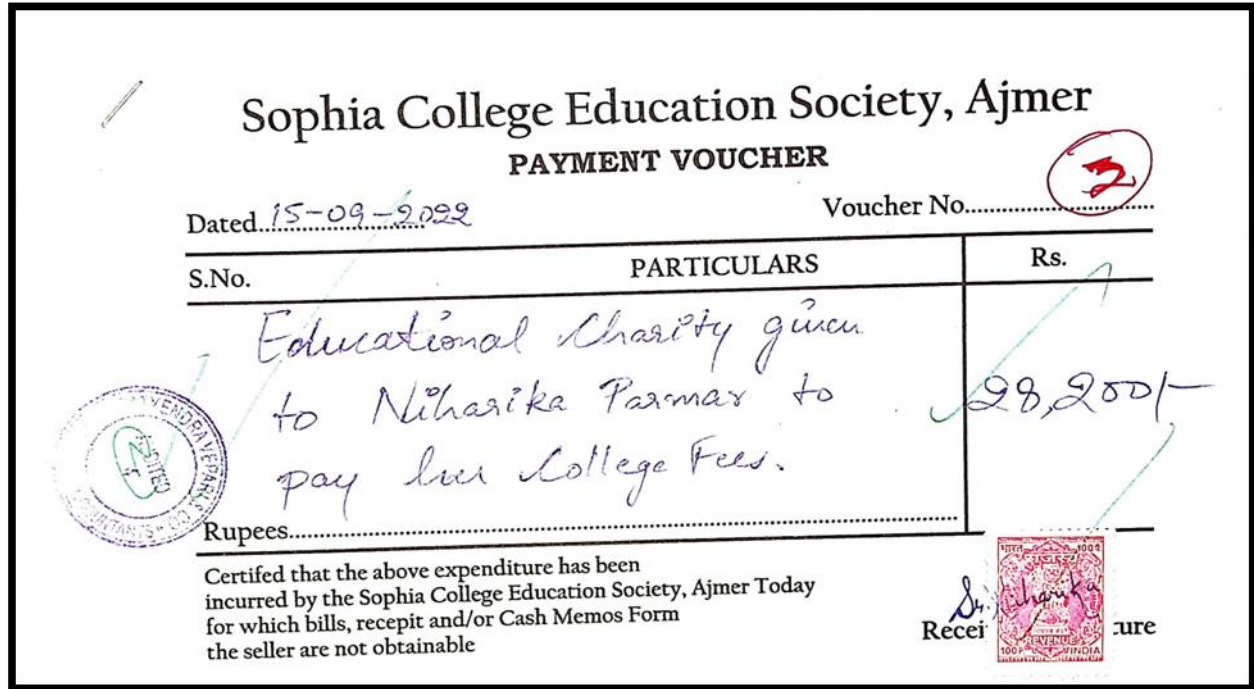 Sophia College Education Society, Ajmer
PAYMENT VOUCHER
Dated 15-09-2022
Voucher No. 3
S.No. PARTICULARS Rs.
Educational Charity given
to Niharika Parmar to 28,200/-
pay her College Fees.
AUDITED
Rupees
Certifed that the above expenditure has been
incurred by the Sophia College Education Society, Ajmer Today
for which bills, recepit and/or Cash Memos Form
the seller are not obtainable
Niharika
भारत 100 प
REVENUE
100P INDIA